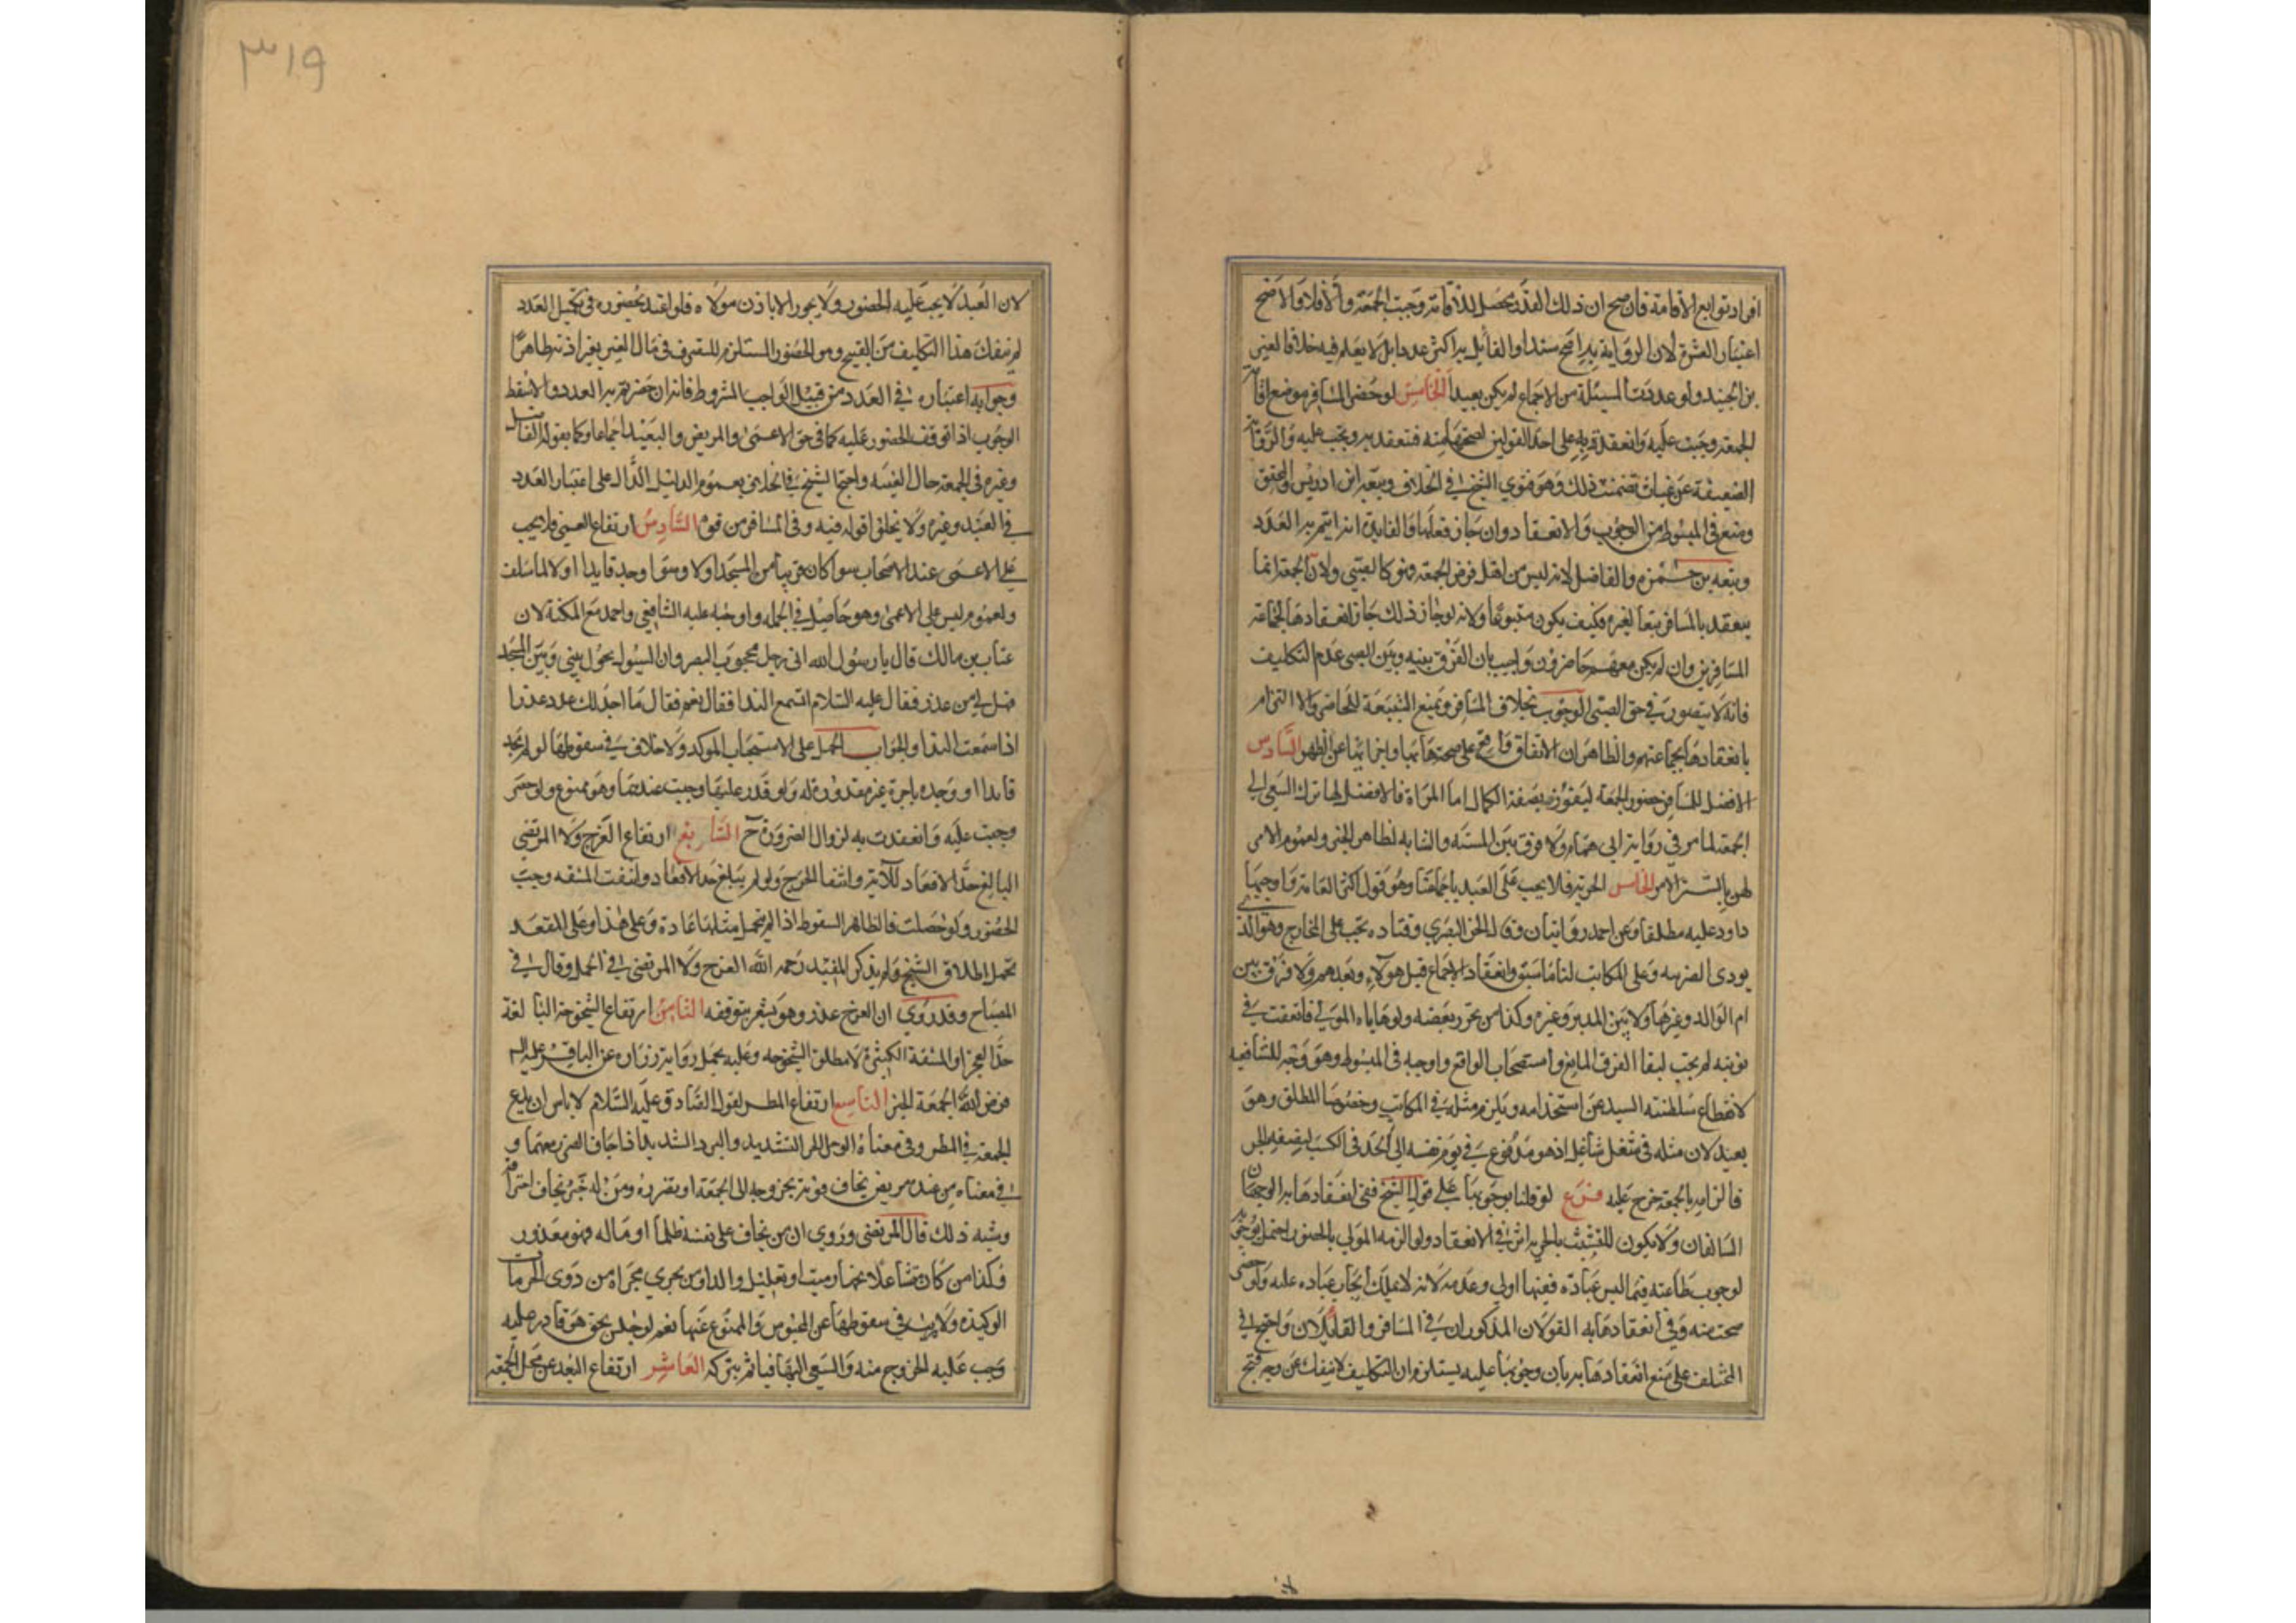 افراد توابع الاقامة فان صح ان ذلك القدر محصل للاقامة وجبت الجمعة والا فلا والاصح
اعتبار العشرة لان الرواية به اصح سندا والقائل به اكثر عددا بل لا يعلم فيه خلاف لغير
بن الجنيد ولو عددت المسئلة من الاجماع لم يكن بعيدا الخامس لو حضر المسافر موضع اقامة
الجمعة وجبت عليه وانعقدت به على احد القولين لصحتها منه فتنعقد به وتجب عليه والرواية
الضعيفة عن غياث تضمنت ذلك وهو فتوى الشيخ في الخلاف وتبعه ابن ادريس والمحقق
ومنع في المبسوط من الوجوب والانعقاد وان جاز فعلها والفايدة انه لا يتم به العدد
وتبعه بن حمزه والفاضل لانه ليس من اهل فرض الجمعة فهو كالصبي ولان الجمعة انما
ينعقد بالمسافر تبعا لغيره فكيف يكون متبوعا ولانه لو جاز ذلك جاز انعقادها بجماعة
المسافرين وان لم يكن معهم حاضرون واجيب بان الفرق بينه وبين الصبي عدم التكليف
فانه لا يتصور في حق الصبي الوجوب بخلاف المسافر ونمنع التبعية للحاضر والا التزام
بانعقادها بجماعتهم والظاهر ان الاتفاق واقع على صحتها بها واجزائها عن الظهر السادس
الافضل للمسافر حضور الجمعة ليفوز بصفة الكمال اما المراة فالافضل لها ترك السعي الى
الجمعة لما مر في رواية ابي همام ولا فرق بين المسنه والشابه لظاهر الخبر ولعموم الامر
لهن بالستر الامر الخامس الحرية فلا يجب على العبد باجماعنا وهو قول اكثر العامة واوجبها
داود عليه مطلقا وعن احمد روايتان وقال الحسن البصري وقتاده تجب على المخارج وهو الذي
يودى الضريبه وعلى المكاتب لنا ما سبق وانعقاد الاجماع قبل هولاء وبعدهم ولا فرق بين
ام الوالد وغيرها ولا بين المدبر وغيره وكذا من تحرر بعضه ولو هاياه المولى فاتفقت في
نوبته لم يجب لبقا الفرق المانع واستصحاب الواقع واوجبه في المبسوط وهو وجه للشافعيه
لانقطاع سلطنته السيد عن استخدامه ويلزم مثله في المكاتب وخصوصا المطلق وهو
بعيد لان مثله في شغل شاغل اذ هو مدفوع في يوم نفسه الى الجد في الكسب لنصفه الحر
فالزامه بالجمعة حرج عليه فرع لو قلنا بوجوبها على قول الشيخ ففي انعقادها به الوجهان
السالفان ولا يكون للتشبث بالحرية اثر في الانعقاد ولو الزمه المولى بالحضور احتمل الوجوب
لوجوب طاعته فيما ليس عباده ففيها اولى وعدمه لانه لا يملك ايجاب عباده عليه ولو حضر
صحت منه وفي انعقادها به القولان المذكوران في المسافر والقايلان واحتج في
المختلف على منع انعقادها به بان وجوبها عليه يستلزم ان التكليف لا ينفك عن وجه قبح
٣١٩
لان العبد لا يجب عليه الحضور ولا يجوز الا باذن مولاه فلو اعتد بحضوره في تكميل العدد
لم ينفك هذا التكليف من القبيح وهو الحضور المستلزم للتصرف في مال الغير بغير اذنه ظاهرا
وجوابه اعتباره في العدد من قبيل الواجب المشروط فانه ان حضر تم به العدد والا سقط
الوجوب اذا توقف الحضور عليه كما في حق الاعمى والمريض والبعيد اجماعا وكما يقوله الفاضل
وغيره في الجمعة حال الغيبه واحتج الشيخ في الخلاف بعموم الدليل الدال على اعتبار العدد
في العبد وغيره ولا يخلو اقواله فيه وفي المسافر من قوه السادس ارتفاع العمى فلا يجب
على الاعمى عند الاصحاب سوا كان قريبا من المسجد او لا وسوا وجد قايدا او لا لما سلف
ولعموم ليس على الاعمى وهو حاصل في الجمله واوجبه عليه الشافعي واحمد مع المكنة لان
عتاب بن مالك قال يا رسول الله اني رجل محجوب البصر وان السيول يحول بيني وبين المسجد
فهل لي من عذر فقال عليه السلام اتسمع الندا فقال نعم فقال ما اجد لك عذرا
اذا سمعت الندا والجواب الحمل على الاستحباب الموكد ولا خلاف في سقوطها لو لم يجد
قايدا او وجده باجرة غير مقدورة له ولو قدر عليها وجبت عندهما وهو ممنوع ولو حضر
وجبت عليه وانعقدت به لزوال الضرورة ح السابع ارتفاع العرج ولا المرتضى
البالغ حد الاقعاد للآية وانتفا الحرج ولو لم يبلغ حد الاقعاد وانتفت المشقه وجب
الحضور ولو حصلت فالظاهر السقوط اذا لم يتحمل مثلها عادة وعلى هذا وعلى المقعد
تحمل اطلاق الشيخ ولم يذكر المفيد رحمه الله العرج ولا المرتضى في الجمل وقال في
المصباح وقد روي ان العرج عذر وهو يشعر بتوقفه الثامن ارتفاع الشيخوخة البالغة
حد العجز او المشقة الكثيرة لا مطلق الشيخوخه وعليه يحمل رواية زرارة عن الباقر عليه السلم
فرض الله الجمعة الخبر التاسع ارتفاع المطر لقول الصادق عليه السلام لا باس ان يدع
الجمعة في المطر وفي معناه الوحل الشديد والبرد الشديد اذا خاف الضرر معهما و
في معناه من عنده مريض يخاف فوته بخروجه الى الجمعة او تضرره ومن له خبز يخاف احتراقه
وشبه ذلك قال المرتضى وروي ان من يخاف على نفسه ظلما او ماله فهو معذور
وكذا من كان متشاغلا بجهاز ميت او تعليل والد او من يجري مجراه من ذوى الحرمات
الوكيده ولا ريب في سقوطها عن المحبوس والممنوع عنها نعم لو حبس بحق هو قادر عليه
وجب عليه الخروج منه والسعي اليها فياثم بتركه العاشر ارتفاع البعد عن محل الجمعة